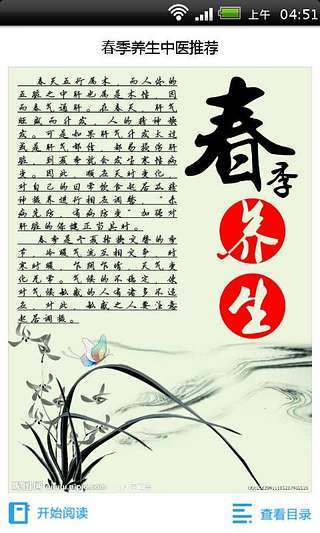 上午 04:51
春季养生中医推荐
春天五行属木，而人体的
五脏之中肝也属木性，因
而春气通肝。在春天，肝气
旺盛而升发，人的精神焕
发。可是如果肝气升发太过
或是肝气郁结，都易损伤肝
脏，到夏季就会发生寒性病
变。因此，顺应天时变化，
对自己的日常饮食起居及精
神摄养进行相应调整，“未
病先防，有病防变”加强对
肝脏的保健正当其时。
春季是个乍暖换交替的季
节，冷暖气流互相交争，时
寒时暖，乍阴乍晴，天气变
化无常。气候的不稳定，使
对气候敏感的人有诸多不适
应。对此，敏感之人要注意
起居调摄。
春季
养
生
开始阅读
查看目录